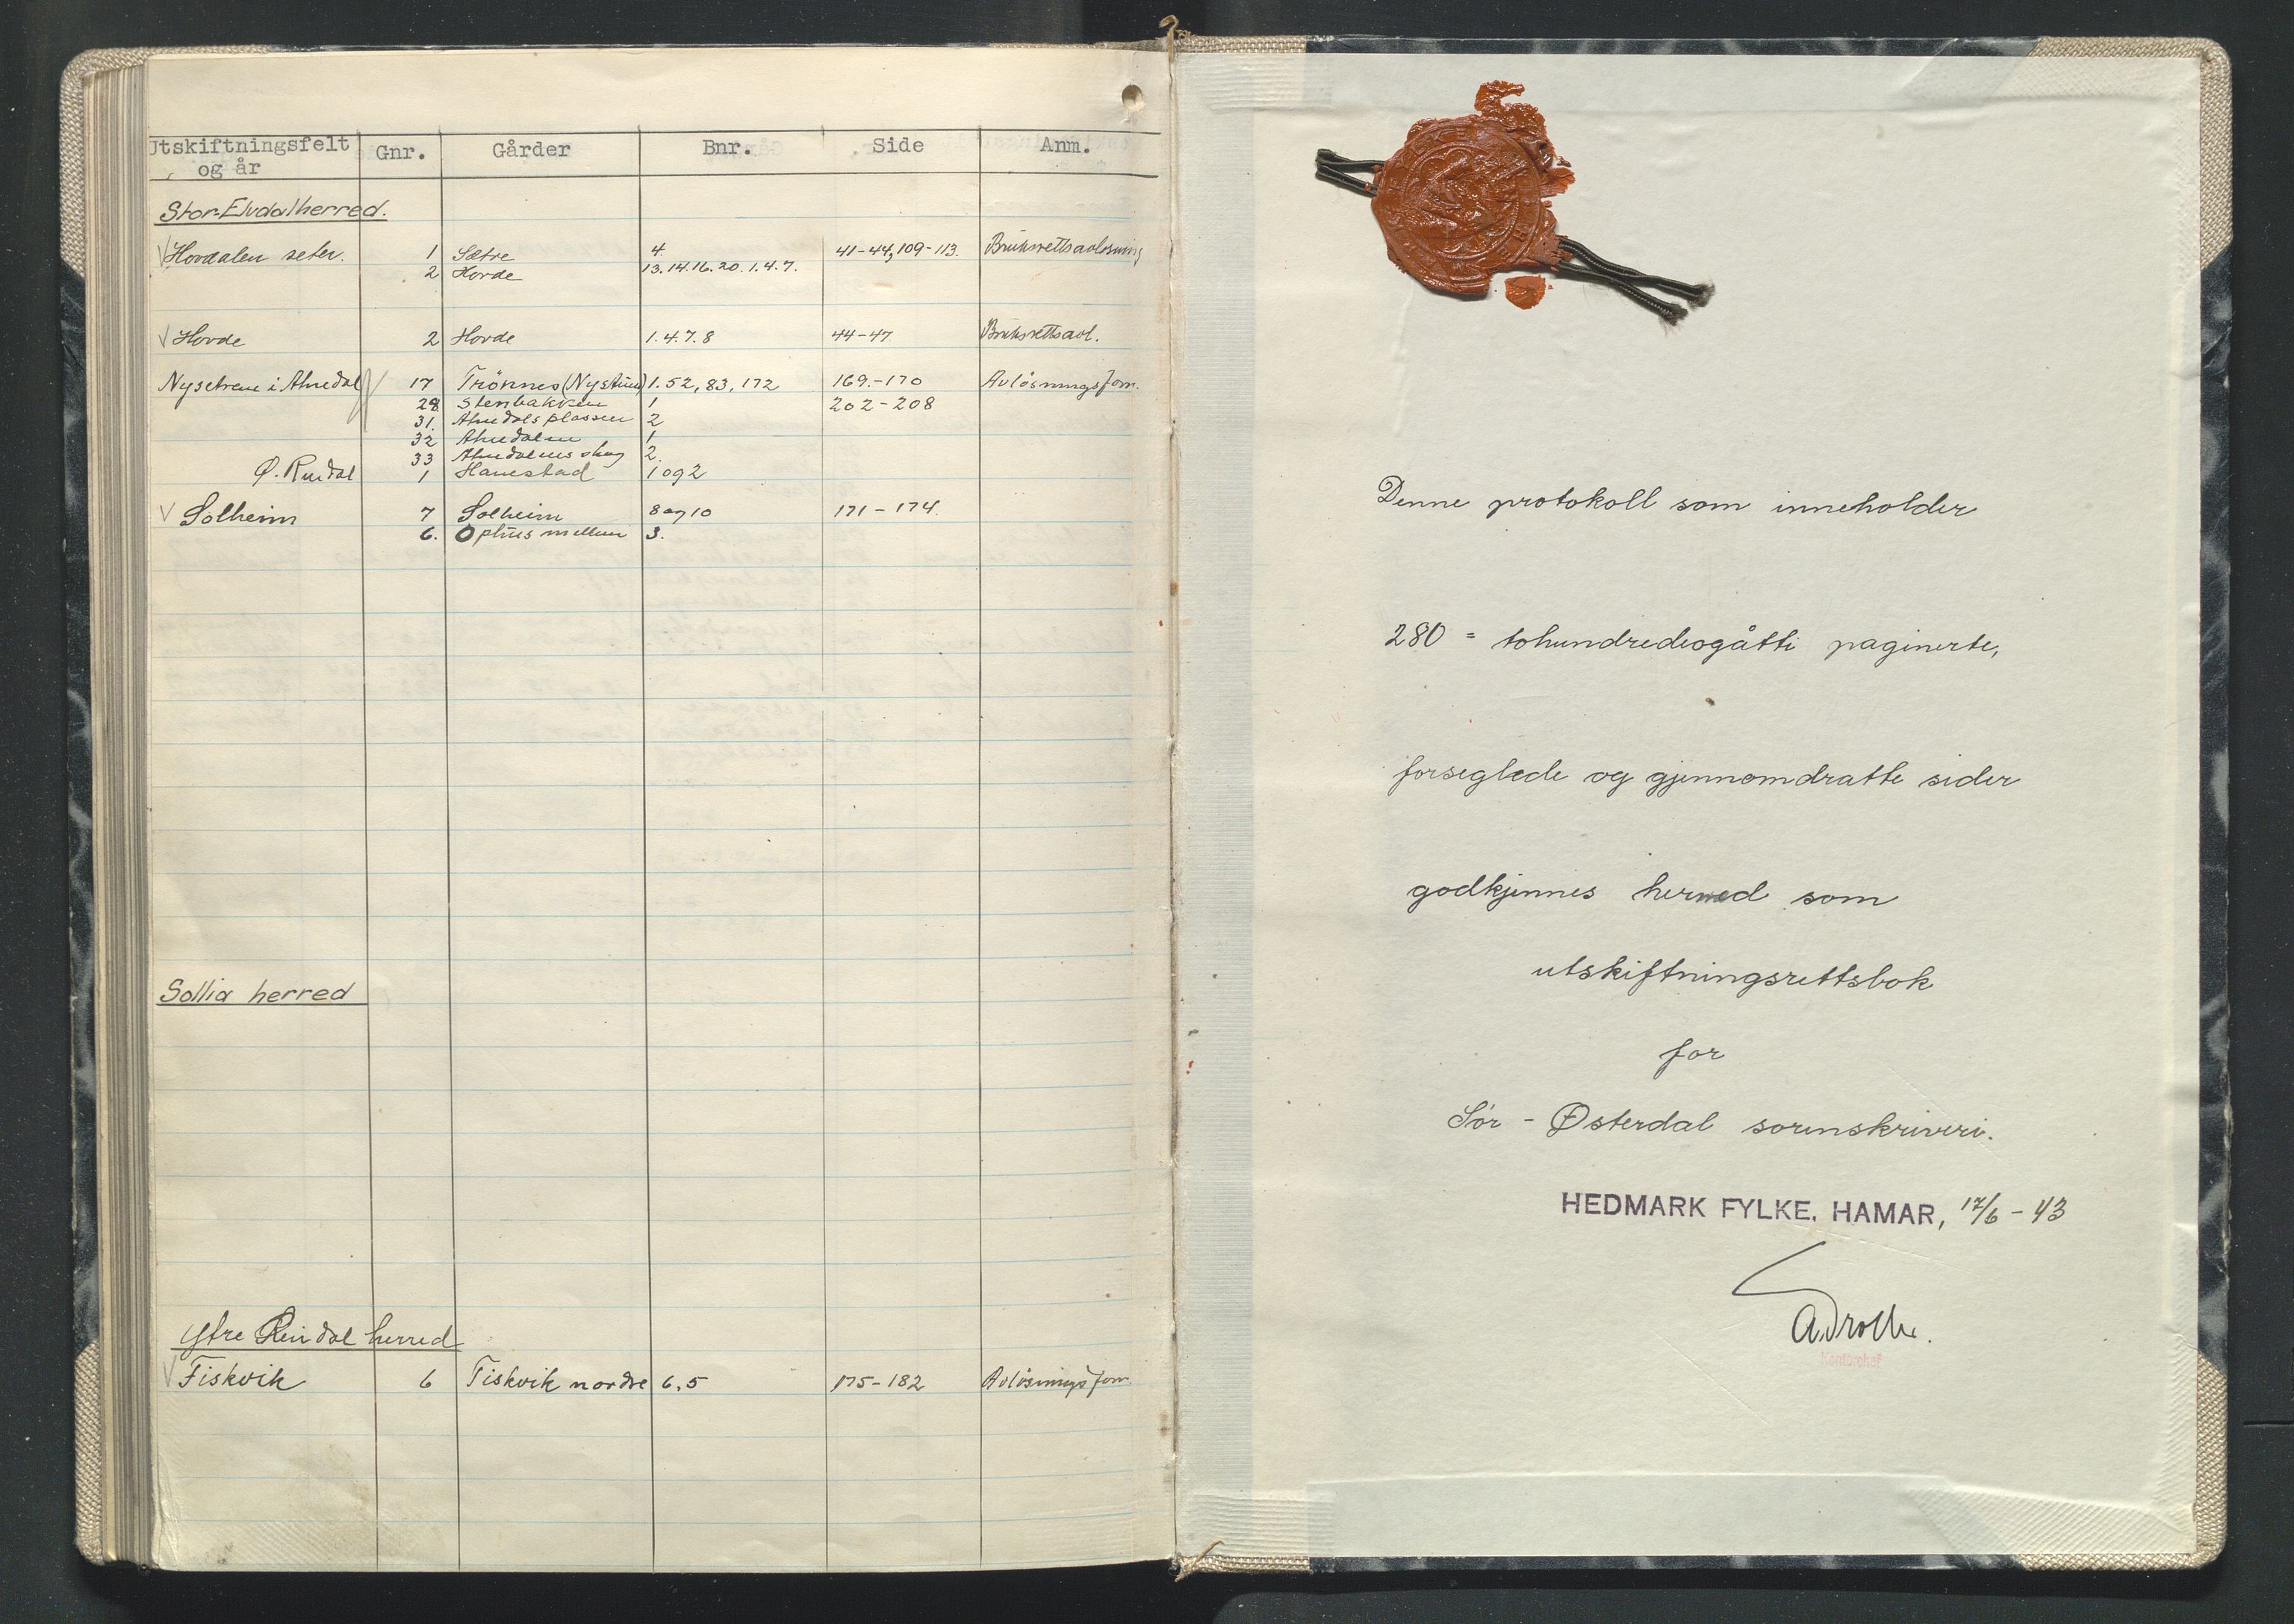 Utskiftningsfelt og år | Gnr. | Gårder | Bnr. | Side | Anm.
Stor-Elvdal herred.
Hovdalen seter. | 1 | Sætre | 4. | 41-44, 109-113. | Bruksrettsavløsning
2 | Hovde | 13.14.16.20.1.4.7.
Hovde | 2 | Hovde | 1.4.7.8 | 44-47 | Bruksrettsavl.
Nysetrene i Atnedal | 17 | Trönnes (Nystuen) | 1.52, 83, 172 | 169.-170 | Avlösningsforr.
28 | Stenbakken | 1 | 202-208
31. | Atnedalsplassen | 2
32 | Atnedalen | 1
33 | Atnedalens skog | 2.
Ø. Rendal | 1 | Hanestad | 1 og 2
Solheim | 7 | Solheim | 8 og 10 | 171-174.
6. | Ophus mellem | 3.
Sollia herred
Ytre Rendal herred
Fiskvik | 6 | Fiskvik nordre | 6,5 | 175-182 | Avlösningsforr.
Denne protokoll som inneholder
280 = tohundredeogåtti paginerte,
forseglede og gjennomdratte sider
godkjennes herved som
utskiftningsrettsbok
for
Sør-Østerdal sorenskriveri.
HEDMARK FYLKE. HAMAR, 17/6-43
Kontorchef